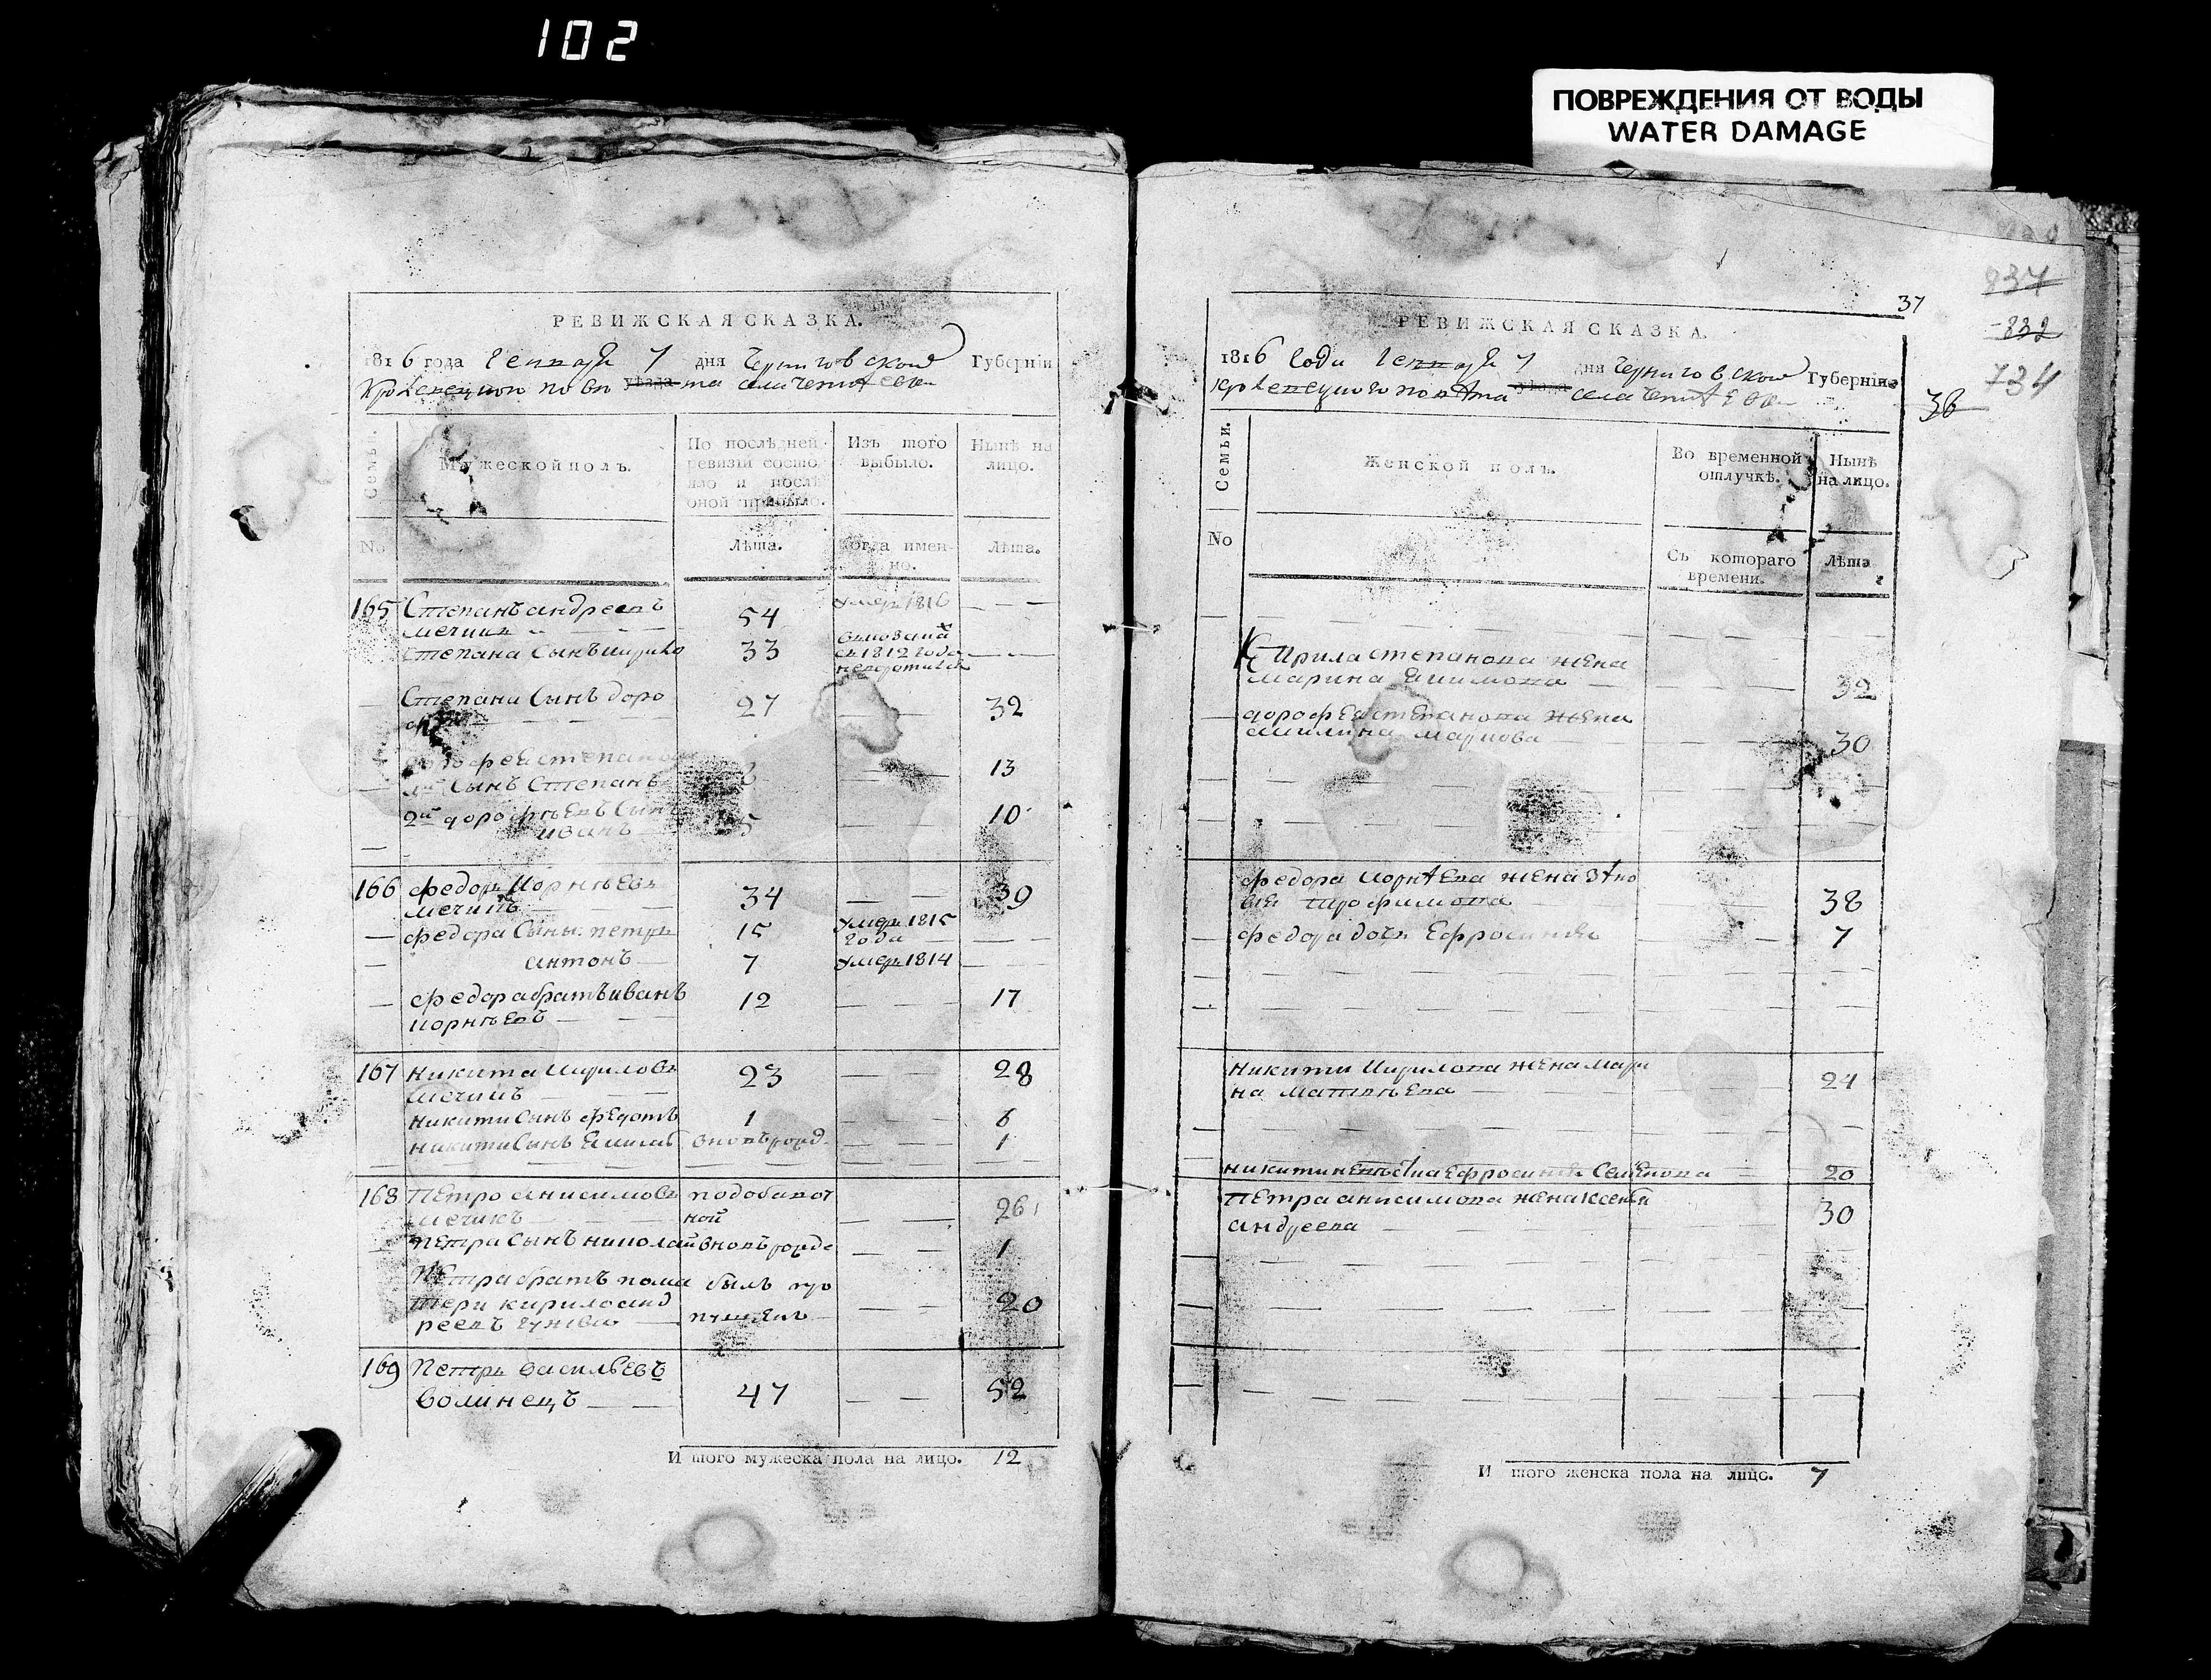 102
ПОВРЕЖДЕНИЯ ОТ ВОДЫ
WATER DAMAGE
РЕВИЖСКАЯ СКАЗКА.
1816 года Генваря 7 дня Черниговской Губерніи
уѣзда села
Семьи.
Мужеской полъ.
По послѣдней
ревизіи состо
яло и послѣ
оной прибыло.
Изъ того
выбыло.
Нынѣ на
лицо.
No
Лѣта.
Когда имен-
но.
Лѣта.
165 Степанъ андреевъ 54 умеръ 1816
мечикъ
Степана Сынъ кирило 33 съ 1812 года
Степана Сынъ доро 27 32
фей
дорофея степанова 13
Сынъ Степанъ
2й дорофѣевъ Сынъ 5 10
иванъ
166 федоръ корнѣевъ 34 39
мечикъ
федора Сынъ петръ 15 умеръ 1815
года
антонъ 7 умеръ 1814
федора братъ иванъ 12 17
корнѣевъ
167 никита кириловъ 23 28
мечикъ
никиты Сынъ федотъ 1 6
никиты Сынъ вновь рожд. 1
168 Петро анисимовъ 26
мечикъ
Петра Сынъ николай вновь рожде 1
Петра братъ пома былъ про
тери кирило анд 20
реевъ
169 Петръ васильевъ
волинецъ 47 52
Итого мужеска пола на лицо. 12
37
837
832
734
36
РЕВИЖСКАЯ СКАЗКА.
1816 Года Генваря 7 дня Черниговской Губерніи
уѣзда села
Семьи.
Женской полъ.
Во временной
отлучкѣ.
Нынѣ
на лицо.
No
Съ котораго
времени.
Лѣта
Кирила степанова жена
марина 32
дорофея степанова жена
маркова 30
федора корнѣева жена зѣно
вія трофимова 38
федора дочь Ефросинія 7
никиты кирилова жена мари
на матвѣева 24
Ефросинія Семенова 20
Петра анисимова жена ксенія
андреева 30
Итого женска пола на лицо. 7